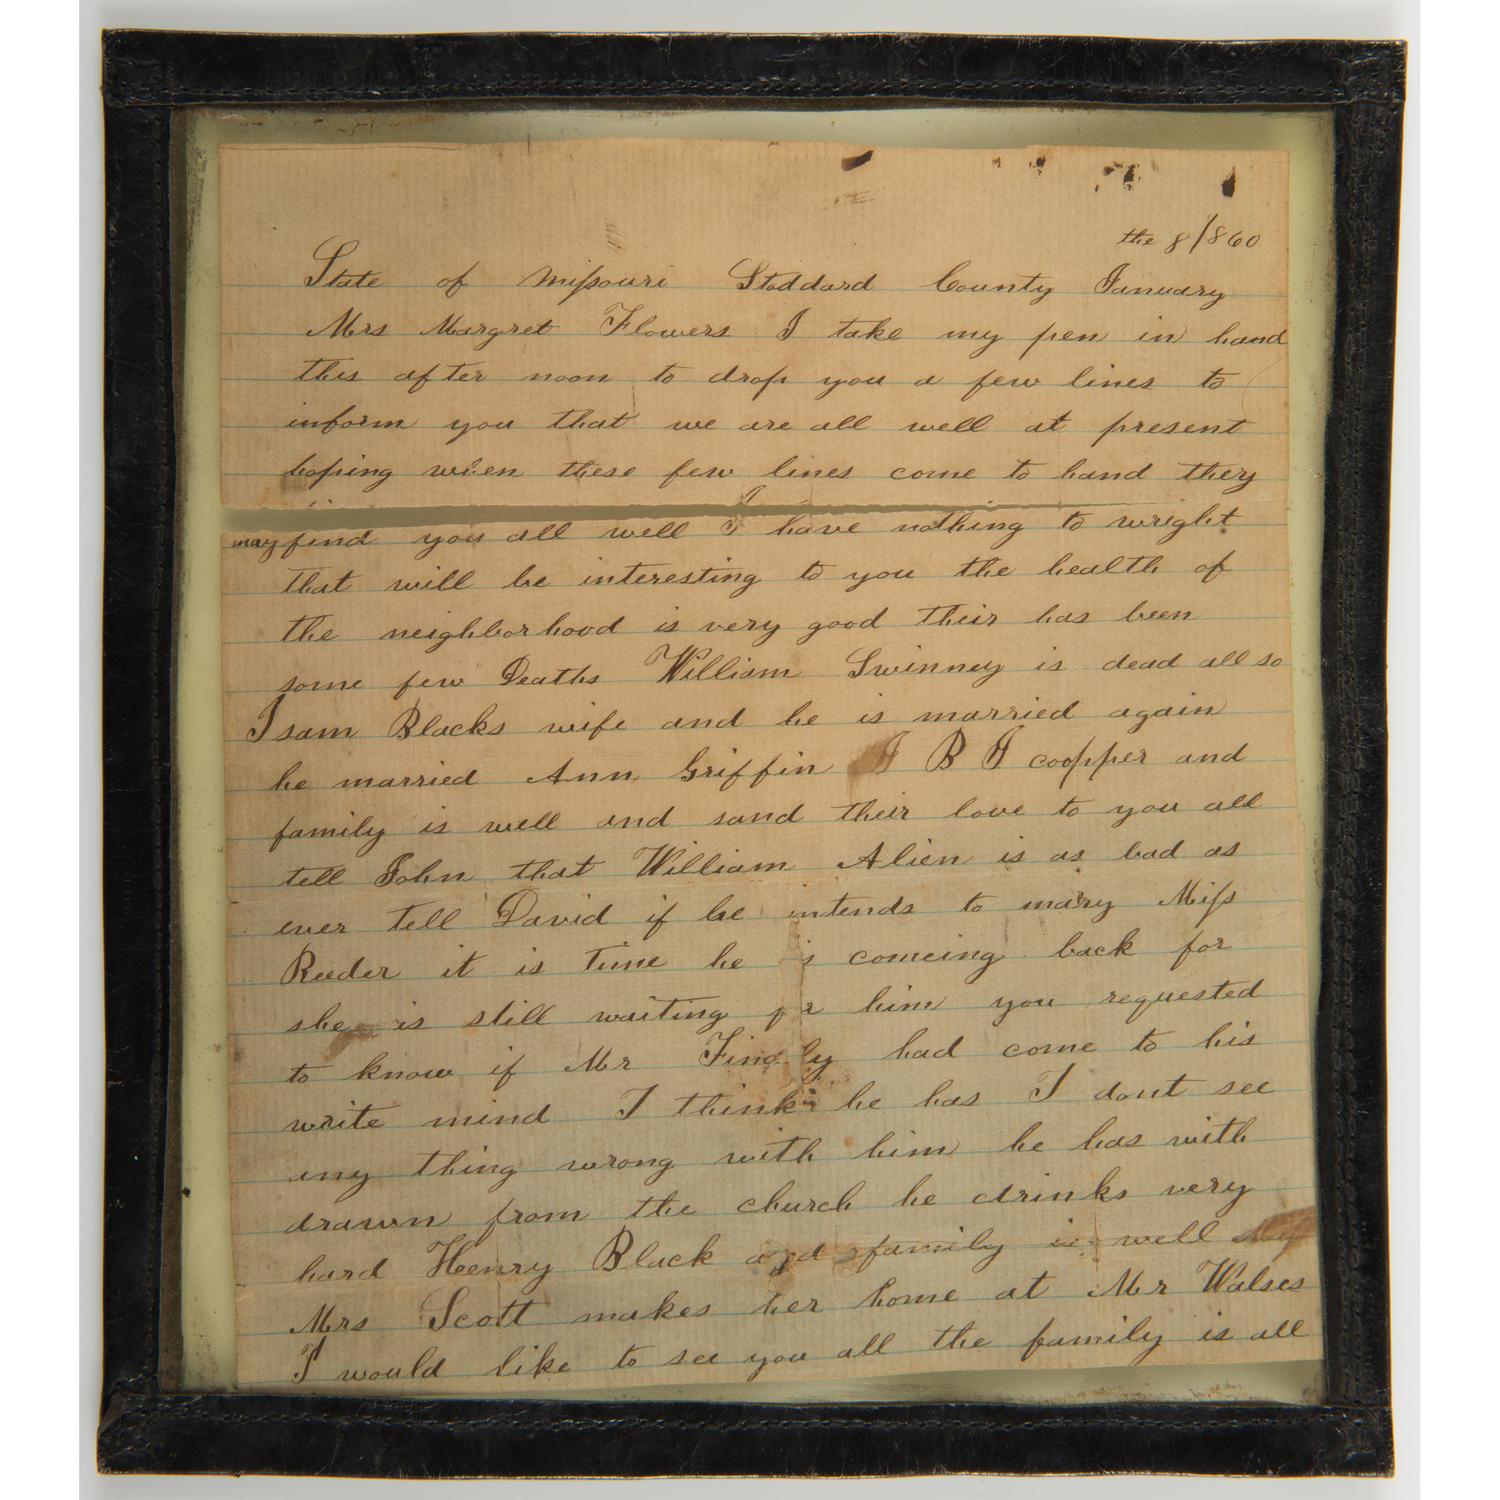 the 8/1860
State of Missouri Stoddard County January
Mrs Margret Flowers I take my pen in hand
this after noon to drop you a few lines to
inform you that we are all well at present
hoping when these few lines come to hand they
may find you all well I have nothing to wright
that will be interesting to you the health of
the neighborhood is very good their has been
some few Deaths William Swinney is dead all so
Isam Blacks wife and he is married again
he married Ann Griffin J B J coopper and
family is well and sand their love to you all
tell John that William Alien is as bad as
ever tell David if he intends to mary Miss
Reeder it is time he is comeing back for
she is still waiting for him you requested
to know if Mr Findly had come to his
write mind I think he has I dont see
any thing wrong with him he has with
drawn from the church he drinks very
hard Henry Black and family is well
Mrs Scott makes her home at Mr Walses
I would like to see you all the family is all